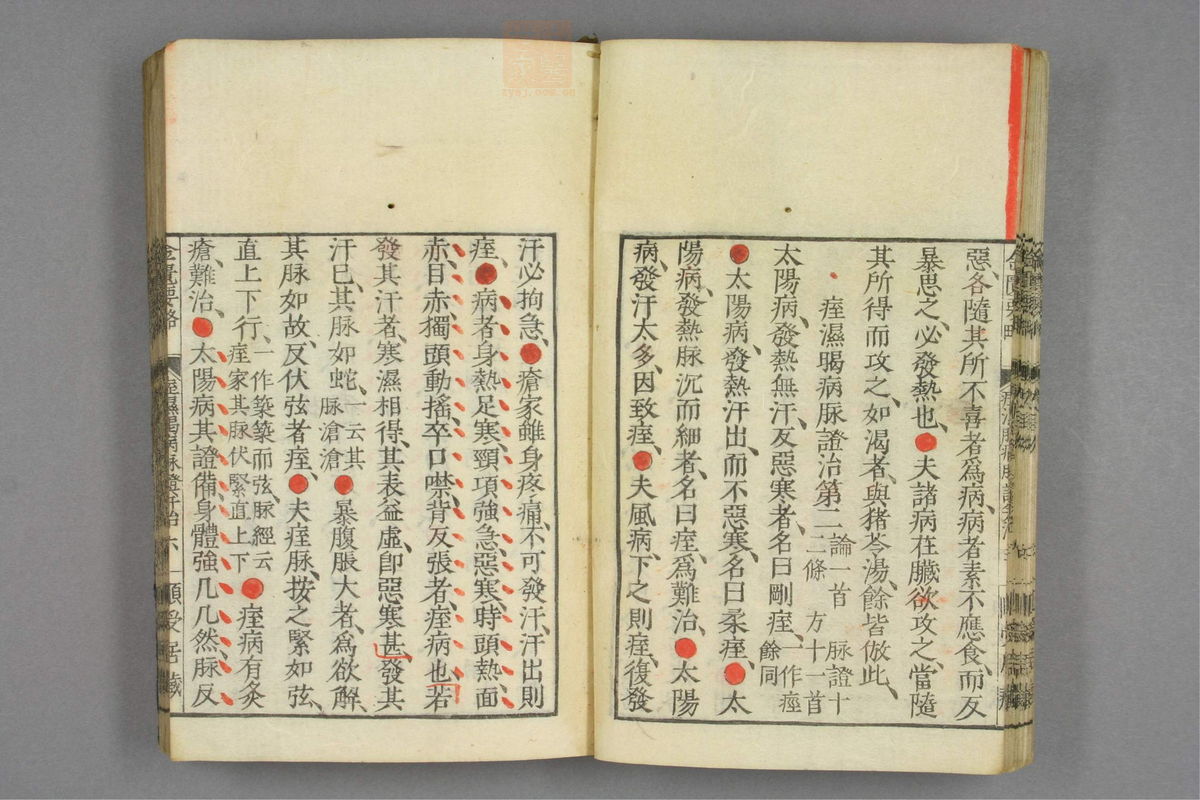 惡、各隨其所不喜者爲病、病者素不應食、而反
暴思之、必發熱也、夫諸病在臟欲攻之、當隨
其所得而攻之、如渴者、與猪苓湯、餘皆倣此、
痓濕暍病脉證治第二論一首 脉證十
二條 方十一首
太陽病、發熱無汗、反惡寒者、名曰剛痓、一作痙
餘同
太陽病、發熱汗出、而不惡寒、名曰柔痓、太
陽病、發熱脉沉而細者、名曰痓、爲難治、太陽
病、發汗太多、因致痓、夫風病、下之則痓、復發
汗必拘急、瘡家雖身疼痛、不可發汗、汗出則
痓、病者身熱足寒、頸項強急、惡寒、時頭熱、面
赤、目赤、獨頭動搖、卒口噤、背反張者、痓病也、若
發其汗者、寒濕相得、其表益虛、卽惡寒甚、發其
汗已、其脉如蛇、一云其
脉滄滄
暴腹脹大者、爲欲解、
其脉如故、反伏弦者痓、夫痓脉、按之緊如弦、
直上下行、一作築築而弦、脉經云
痓家其脉伏緊直上下
痓病有灸
瘡、難治、太陽病其證備、身體強几几然、脉反
金匱要略
痓濕暍病脉證幷治 六